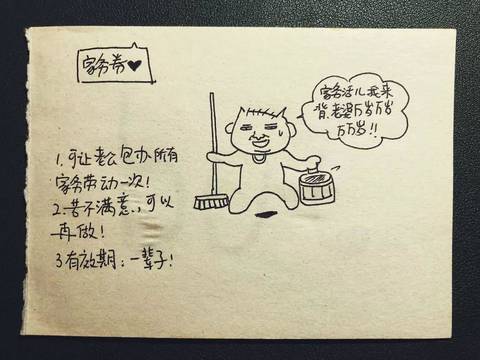 家务券♥
家务活儿我来
背,老婆万岁万岁
万万岁!!
1.可让老公包办所有
家务劳动一次!
2.若不满意,可以
再做!
3.有效期:一辈子!